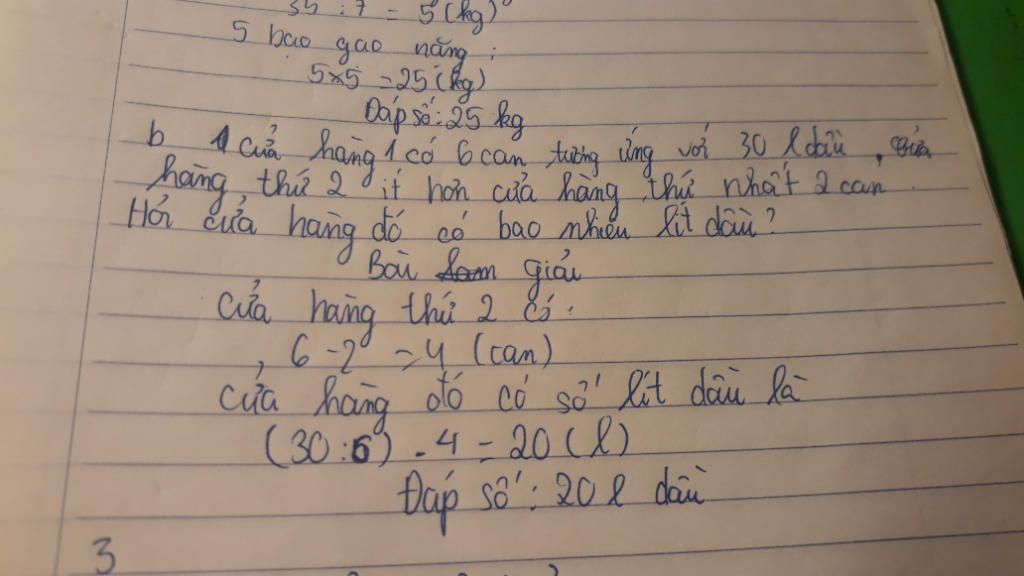 35 : 7 = 5 (kg)
5 bao gao năng :
5x5 = 25 (kg)
Đáp số : 25 kg
b 1 cửa hàng 1 có 6 can tương ứng với 30 l dầu , cửa
hàng thứ 2 ít hơn cửa hàng thứ nhất 2 can .
Hỏi cửa hàng đó có bao nhiêu lít dầu ?
Bài giải
Cửa hàng thứ 2 có :
6 - 2 = 4 (can)
cửa hàng đó có số lít dầu là
(30 : 6) . 4 = 20 (l)
Đáp số : 20 l dầu
3